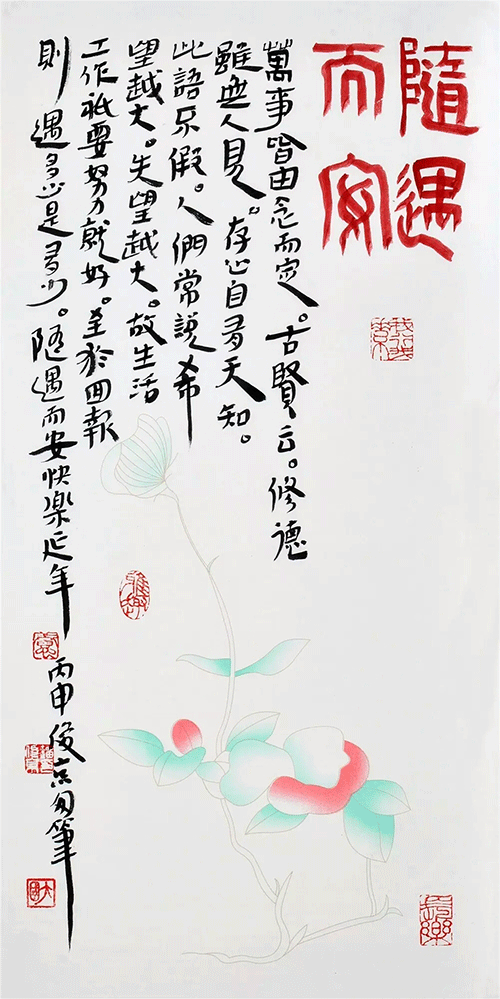 隨遇
而安
萬事皆由念而定。古賢云。修德
雖無人見。存心自有天知。
此語不假。人們常說希
望越大。失望越大。故生活
工作祇要努力就好。至於回報
則遇多少是多少。隨遇而安快樂延年
丙申俊京筆
雅趣
長樂